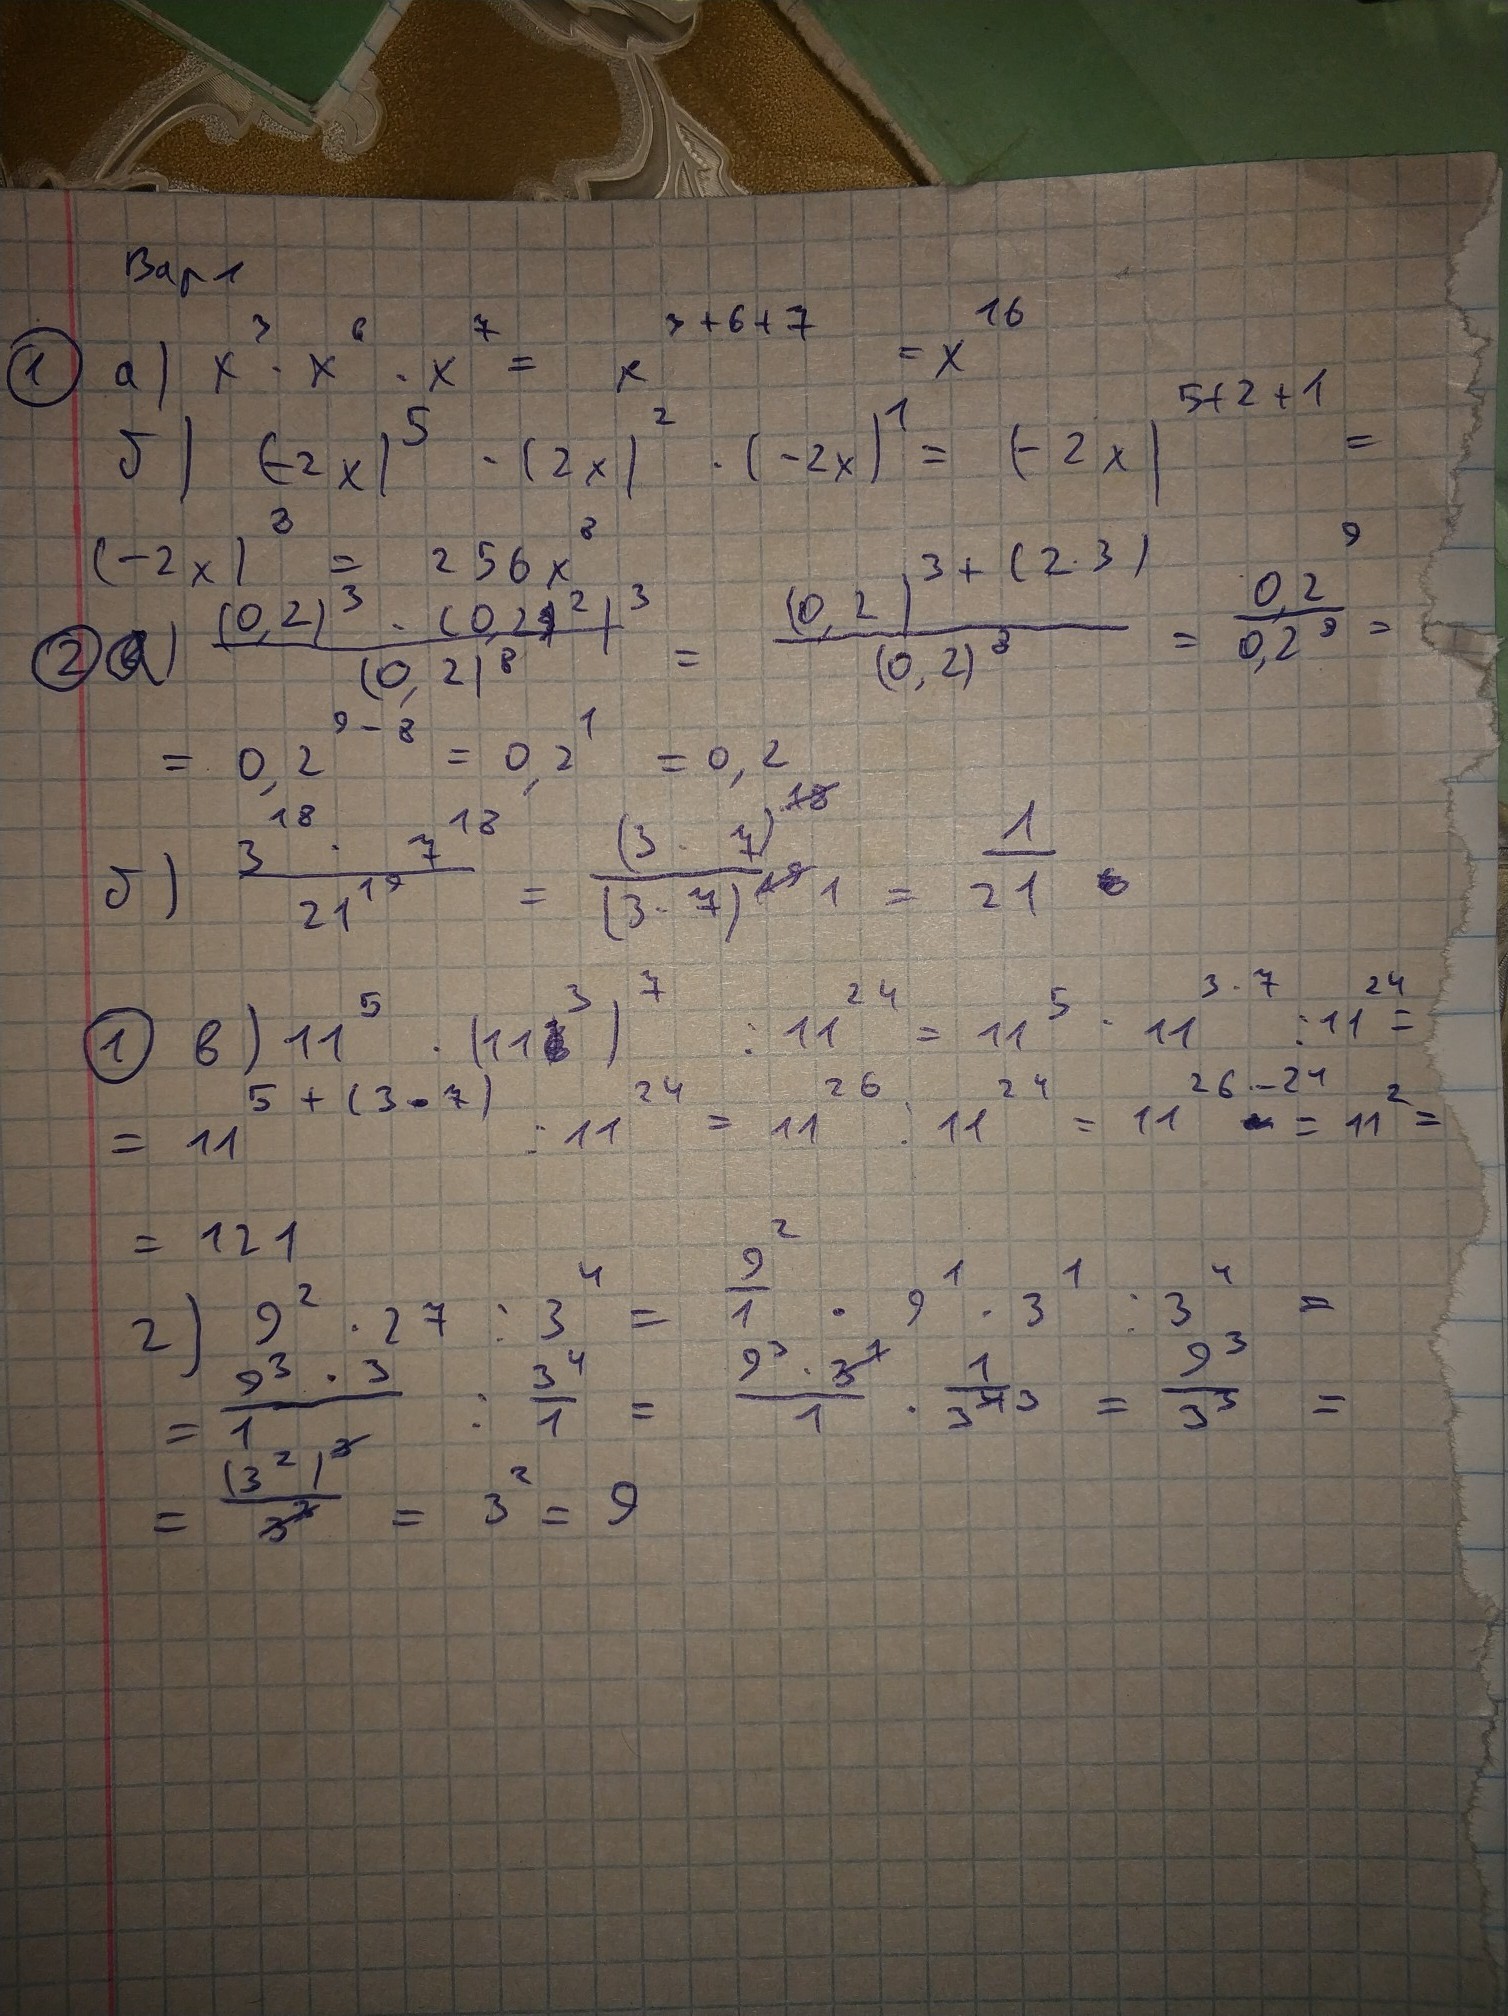 Вар 1
① а) x³ · x⁶ · x⁷ = x³⁺⁶⁺⁷ = x¹⁶
б) (-2x)⁵ · (2x)² · (-2x)¹ = (-2x)⁵⁺²⁺¹ =
(-2x)⁸ = 256x⁸
② а) (0,2)³ · (0,2²)³ / (0,2)⁸ = (0,2)³⁺⁽²·³⁾ / (0,2)⁸ = 0,2⁹ / 0,2⁸ =
= 0,2⁹⁻⁸ = 0,2¹ = 0,2
б) 3¹⁸ · 7¹⁸ / 21¹⁹ = (3 · 7)¹⁸ / (3 · 7)¹⁹ 1 = 1 / 21
① в) 11⁵ · (11³)⁷ : 11²⁴ = 11⁵ · 11³·⁷ : 11²⁴ =
= 11⁵⁺⁽³·⁷⁾ : 11²⁴ = 11²⁶ : 11²⁴ = 11²⁶⁻²⁴ = 11² =
= 121
г) 9² · 27 : 3⁴ = 9² / 1 · 9¹ · 3¹ : 3⁴ =
= 9³ · 3 / 1 : 3⁴ / 1 = 9³ · 3¹ / 1 · 1 / 3⁴ 3 = 9³ / 3³ =
= (3²)³ / 3³ = 3² = 9